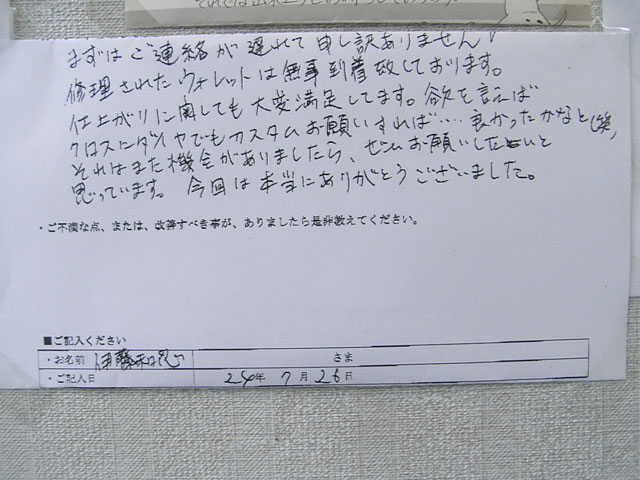 まずはご連絡が遅れて申し訳ありません！
修理されたウォレットは無事到着致しております。
仕上がりに関しても大変満足してます。欲を言えば
クロスにダイヤでもカスタムお願いすれば……良かったかなと(笑)
それはまた機会がありましたら、ぜひお願いしたいと
思っています。今回は本当にありがとうございました。
・ご不満な点、または、改善すべき事が、ありましたら是非教えてください。
■ご記入ください
・お名前 伊藤 さま
・ご記入日 24年 7月 26日